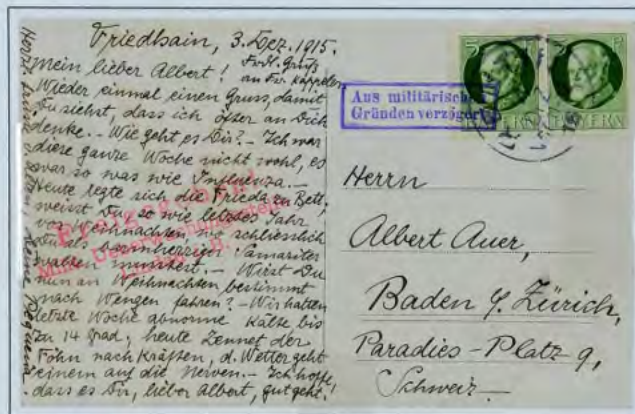 Friedhain, 3. Dez. 1915.
Mein lieber Albert! Frdl. Gruß
an Fr. Kappeler
Wieder einmal einen Gruss, damit
Du siehst, dass ich öfter an Dich
denke. - Wie geht es Dir? - Ich war
diese ganze Woche nicht wohl, es
war so was wie Influenza. -
Heute legte sich die Frieda zu Bett,
weisst Du, so wie letztes Jahr
vor Weihnachten, wo schliesslich
barmherzigen Samariter
walten musstest. - Wirst Du
nun an Weihnachten bestimmt
nach Wengen fahren? - Wir hatten
letzte Woche abnorme Kälte bis
zu 14 Grad; heute rennet der
Föhn nach Kräften, d. Wetter geht
einem auf die Nerven. - Ich hoffe,
dass es Dir, lieber Albert, gut geht!
Freigegeben
Aus militärischen
Gründen verzögert
BAYERN
Herrn
Albert Auer,
Baden b/ Zürich,
Paradies-Platz 9,
Schweiz